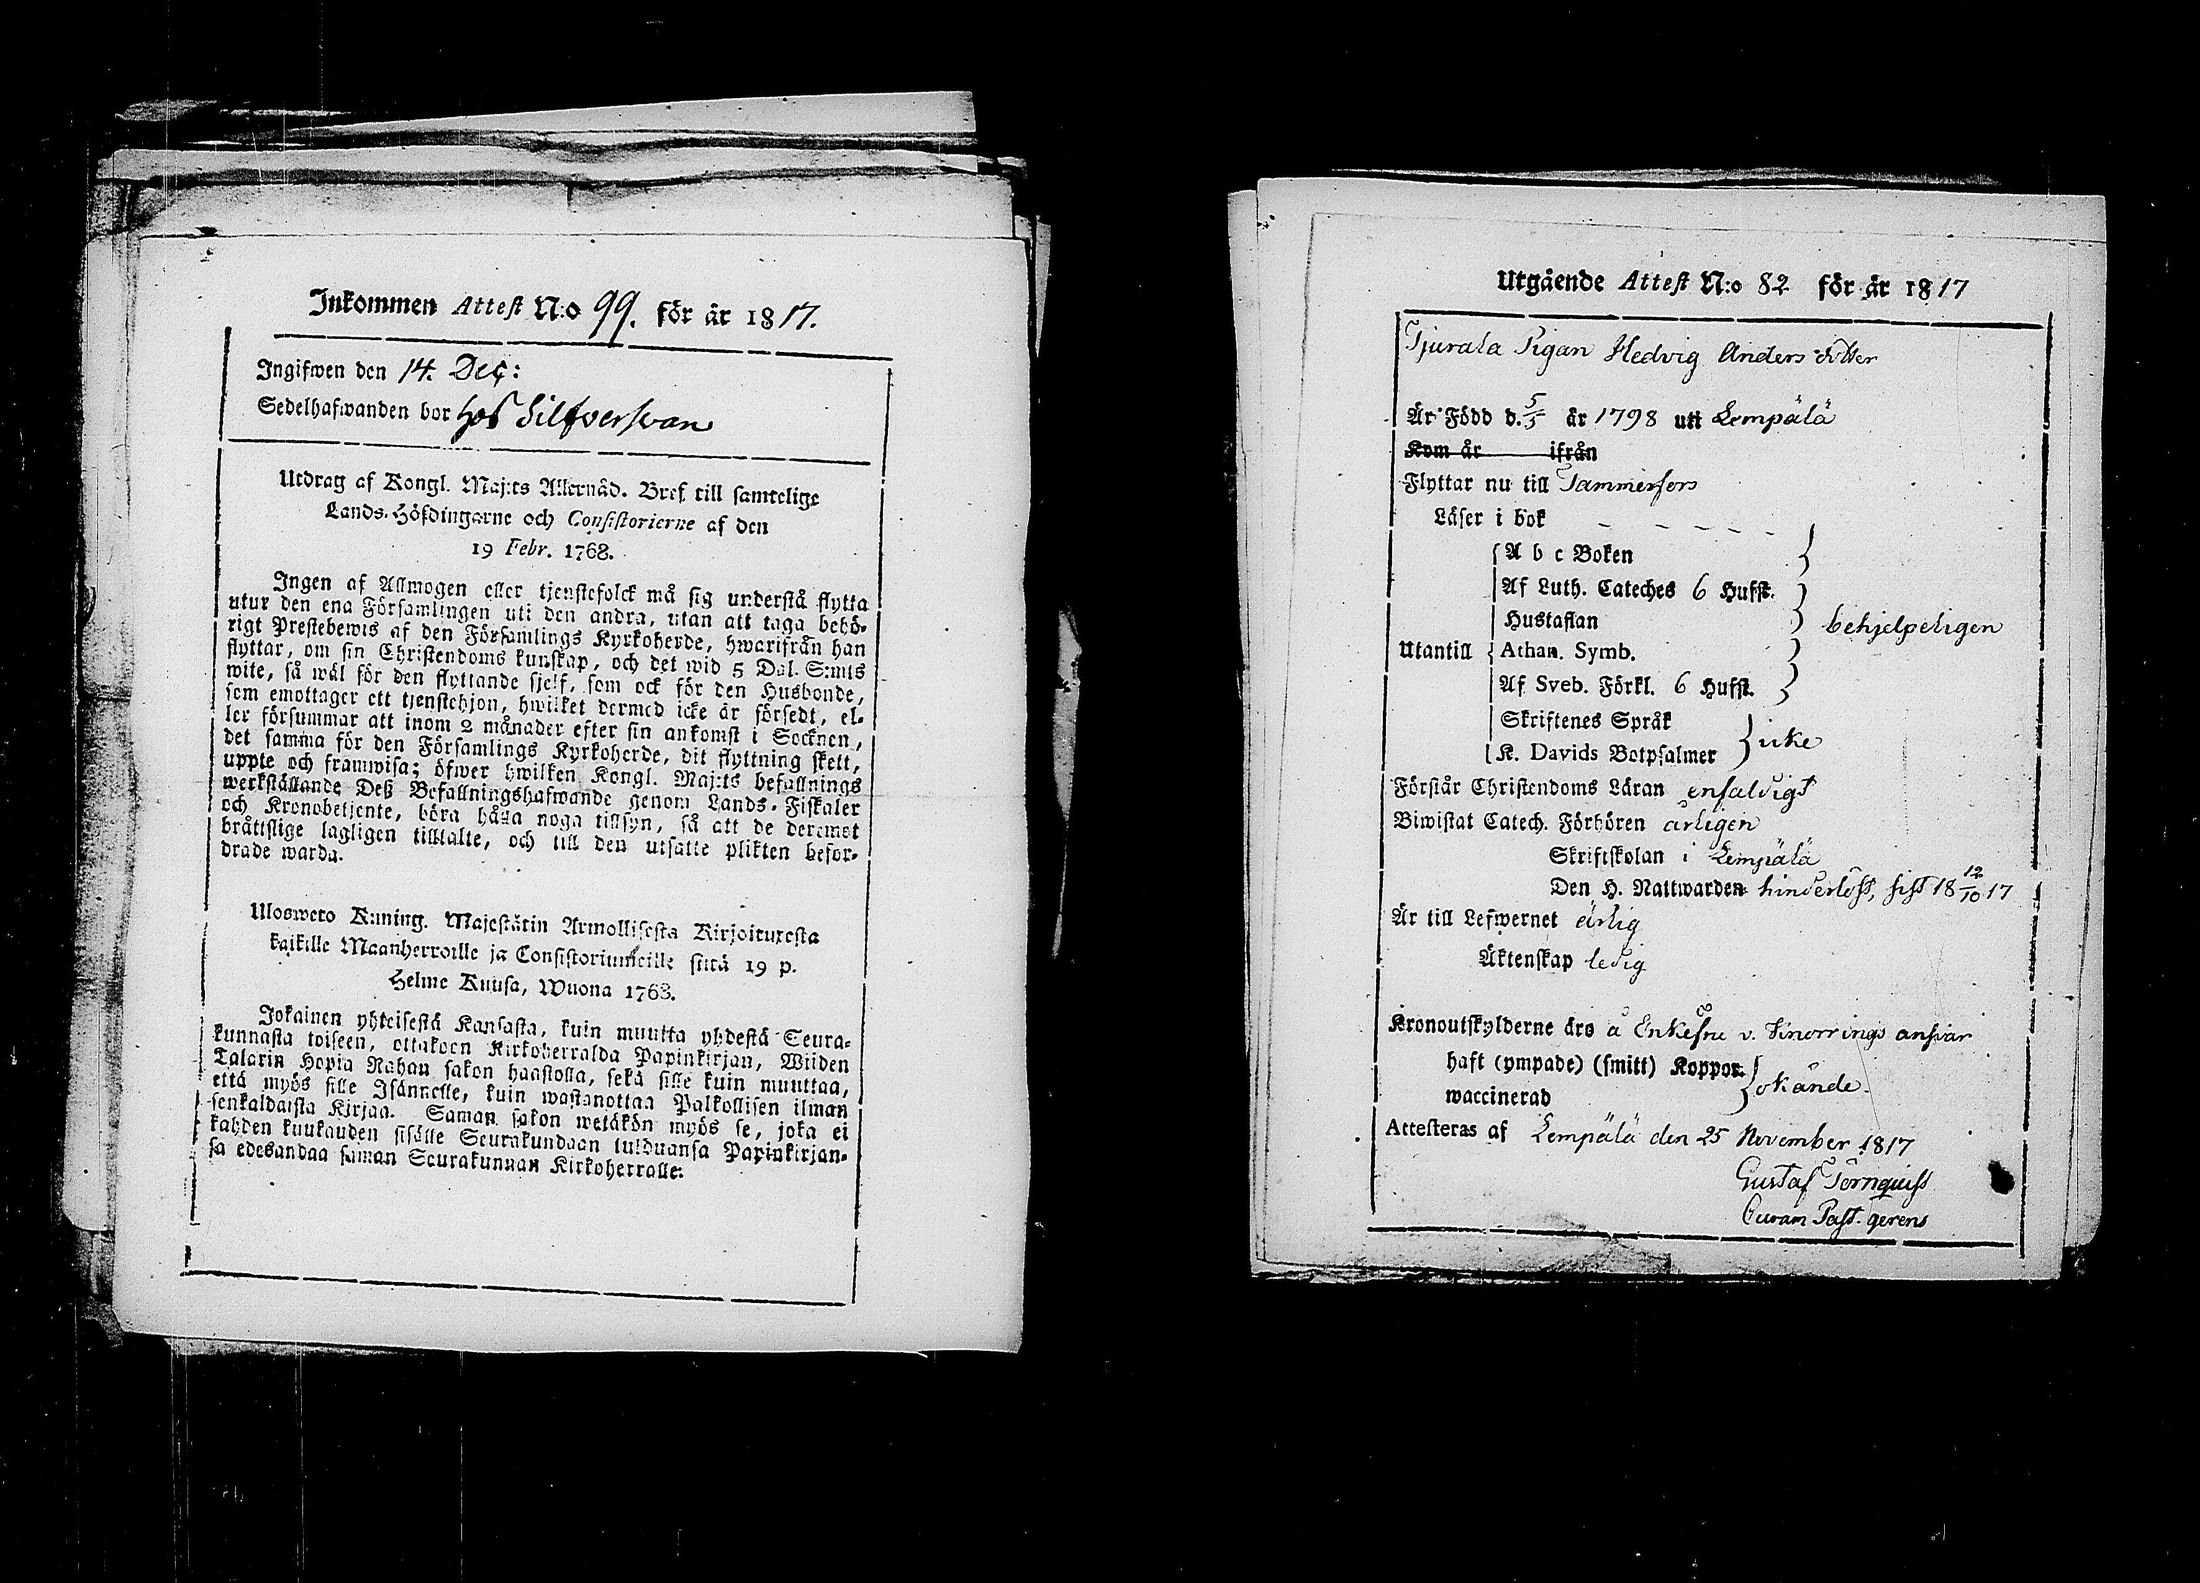 Inkommen Attest N:o 99. för år 1817.
Ingifwen den 14. Dec:
Sedelhafwanden bor hos Silfversvan
Utdrag af Kongl. Maj:ts Allernåd. Bref till samtelige
Lands-Höfdingarne och Consistorierne af den
19 Febr. 1768.
Ingen af Allmogen eller tjenstefolck må sig understå flytta
utur den ena Församlingen uti den andra, utan att taga behö-
rigt Prestebewis af den Församlings Kyrkoherde, hwarifrån han
flyttar, om sin Christendoms kunskap, och det wid 5 Dal. S:mts
wite, så wäl för den flyttande sjelf, som ock för den Husbonde,
som emottager ett tjenstehjon, hwilket dermed icke är försedt, el-
ler försummar att inom 2 månader efter sin ankomst i Socknen,
det samma för den Församlings Kyrkoherde, dit flyttning skett,
uppte och framwisa; öfwer hwilken Kongl. Maj:ts befallnings
werkställande Deß Befallningshafwande genom Lands-Fiskaler
och Kronobetjente, böra hålla noga tillsyn, så att de deremot
bråttslige lagligen tilltalte, och till den utsatte plikten befor-
drade warda.
Ulosweto Kuning. Majestätin Armollisesta Kirjoituxesta
kaikille Maanherroille ja Consistoriumeille siitä 19 p.
Helme Kuusa, Wuona 1768.
Jokainen yhteisestä Kansasta, kuin muutta yhdestä Seura-
kunnasta toiseen, ottakoon Kirkoherralda Papinkirjan, Wiiden
Talarin Hopia Rahan sakon haastolla, sekä sille kuin muuttaa,
että myös sille Isännelle, kuin wastanottaa Palkollisen ilman
senkaldaista Kirjaa. Saman sakon wetäkön myös se, joka ei
kahden kuukauden sisälle Seurakundaan tulduansa Papinkirjan-
sa edesandaa saman Seurakunnan Kirkoherralle.
Utgående Attest N:o 82 för år 1817
Tjurala Pigan Hedvig Anders dotter
Är Född d. 5/5 år 1798 uti Lempälä
Kom år ifrån
Flyttar nu till Tammerfors
Läser i bok
A b c Boken
Af Luth. Cateches 6 Hufst.
Hustaflan
behjelpeligen
Utantill Athan. Symb.
Af Sveb. Förkl. 6 Hufst.
Skriftenes Språk
icke
K. Davids Botpsalmer
Förstår Christendoms Läran enfaldigt
Biwistat Catech. Förhören årligen
Skriftskolan i Lempälä
Den H. Nattwarden hinderlöst, sist 18 12/10 17
Är till Lefwernet ärlig
Äktenskap ledig
Kronoutskylderne äro å Enkefru v. Knorrings ansvar
haft (ympade) (smitt) Koppor
okände
waccinerad
Attesteras af Lempälä den 25 November 1817
Gustaf Törnquist
Curam Past. gerens